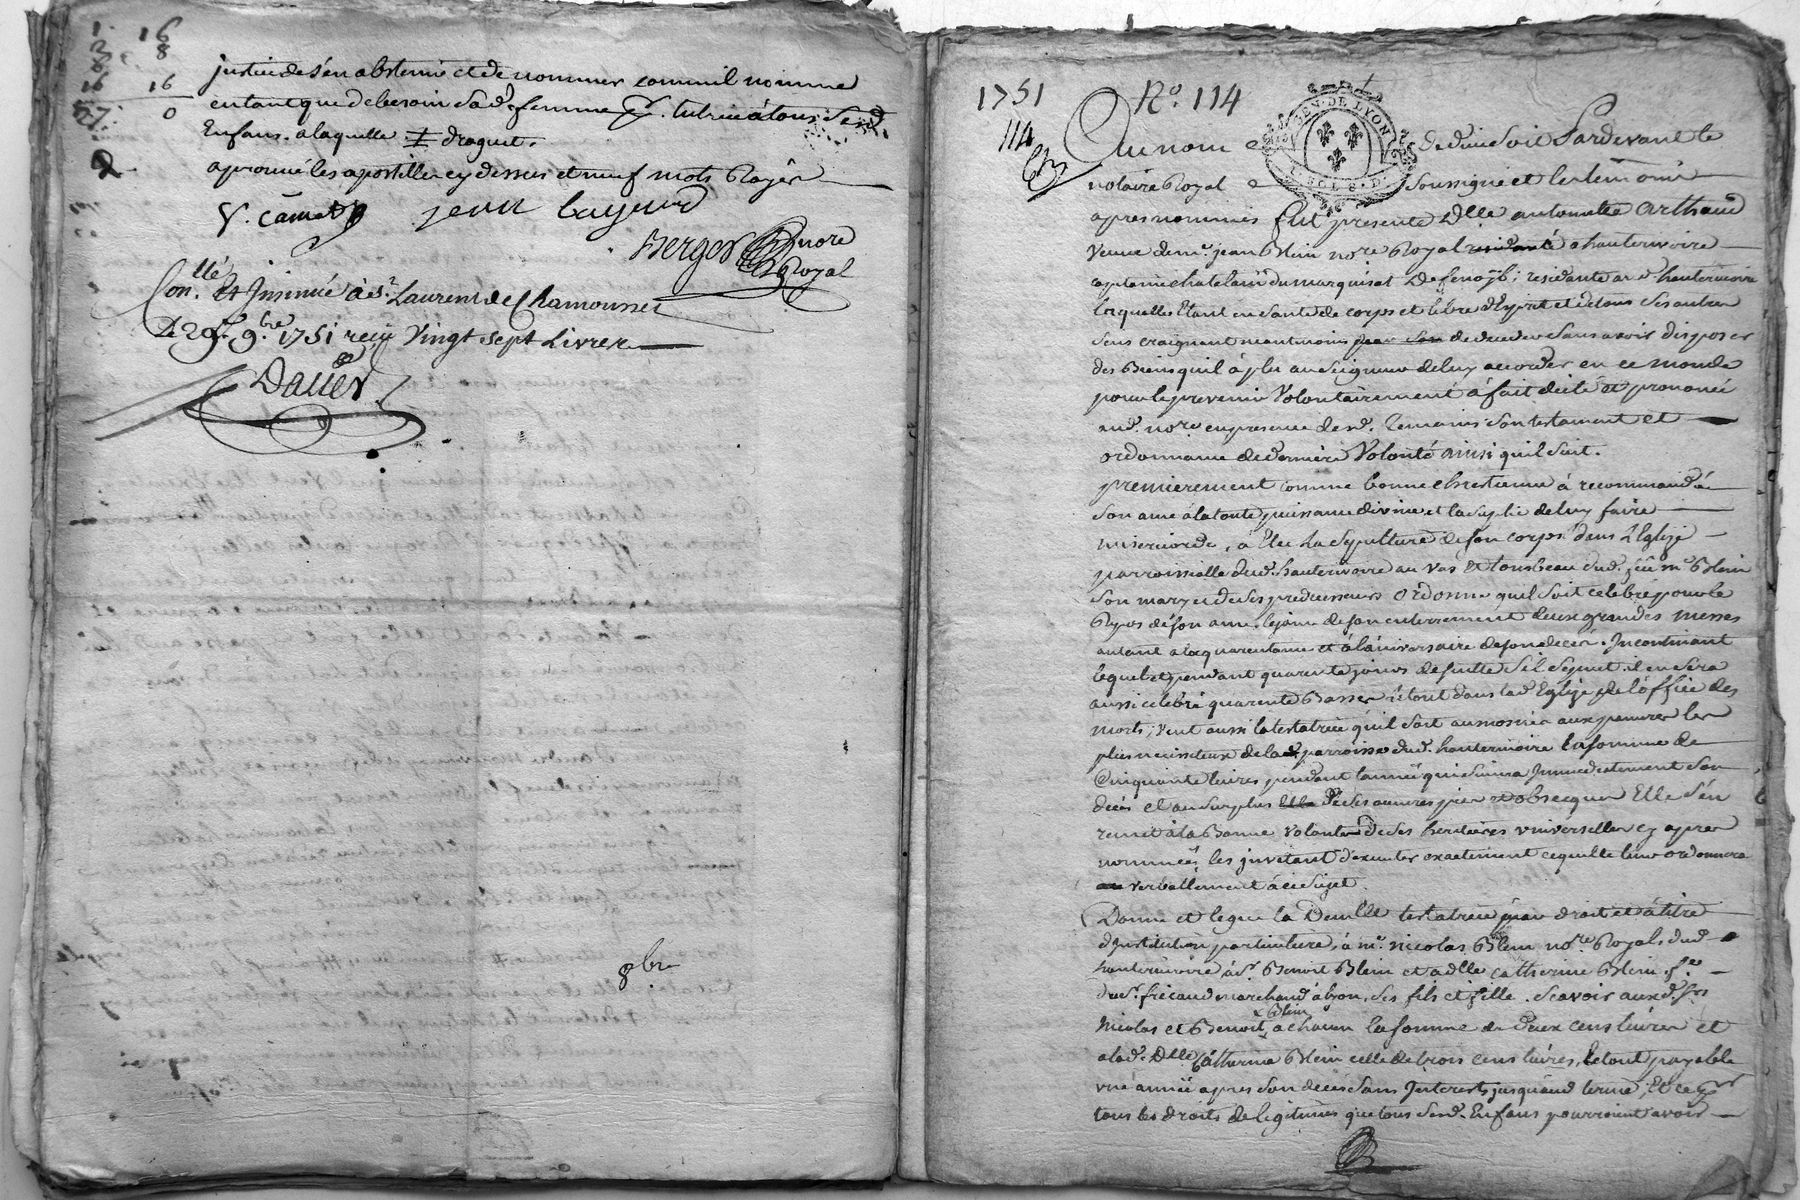 1 16
2 8
8
16 16
57 0
justice de s'en abstenir et de nommer comme il nomme
en tant que de besoin sad. femme tutrice à tous sesd.
Enfans. a laquelle ‡ droguet.
aprouvé les apostilles cy dessus et neuf mots Rayés
jean
Berger nore
Royal
Con.llé et Insinué à St. Laurent de Chamousset
Le 29e. 9.bre 1751 reçu Vingt sept Livres
8bre
1751 No. 114
114
GEN. DE LYON
Au nom de Dieu soit Pardevant le
notaire Royal soussigné et les temoins
apres nommés fut presente Dlle antoinette Arthaud
Veuve de me. jean Blein nore Royal residante a hauterivoire
capitaine chatelain du marquisat de fenoÿl; residante aud. hauterivoire
laquelle Etant en santé de corps et libre d'Esprit et de tous ses autres
sens craignant neantmoins de deceder sans avoir disposer
des Biens quil à plu au Seigneur de luy accorder en ce monde
pour le prevenir Volontairement à fait dicté et prononcé
aud. nore en presence desd. temoins son testament et
ordonnance de derniere Volonté ainsi quil suit.
premierement comme bonne chrestienne à recommandé
son ame à la toute puissance divine et la suplie de luy faire
misericorde, à Elu la sepulture de son corps dans L'Eglize
parroissialle dud. hauterivoire au Vas et tombeau dud. feu me Blein
son mary et de ses predecesseurs ordonne quil soit celebré pour le
Repos de son ame le jour de son enterrement deux grandes messes
autant a la quarantaine et à l'aniversaire de son decés. Incontinant
lequel et pendant quarente jours de suitte s'il se peut il en sera
aussi celebré quarente Basses le tout dans lad. Eglize de l'office des
morts; Veut aussi la testatrice quil soit aumosnée aux pauvres les
plus necessiteux de la parroisse dud. hauterivoire la somme de
Cinquante livres pendant l'année qui suivra Immediatement son
decés et au surplus de ses œuvres pies et obseques Elle s'en
remet à la Bonne Volonté de ses heritieres universelles cy apres
nommées les invitant d'executer exactement ce quelle leur ordonnera
verballement à ce sujet.
Donne et legue la Demlle testatrice par droit et à titre
d'institution particuliere, à me. nicolas Blein nore Royal, dud
hauterivoire à sr. Benoit Blein et a dlle catherine Blein fe.
du sr. fricaud marchand à lyon, ses fils et fille. Scavoir auxd. srs
Blein
Nicolas et Benoit a chacun la somme de deux cens livres et
a lad. Dlle Catherine Blein celle de trois cens livres, le tout payable
une année apres son decés sans Interests jusquaud. terme; Et ce pr
tous les droits de legitimes que tous sesd. Enfans pourroient avoir